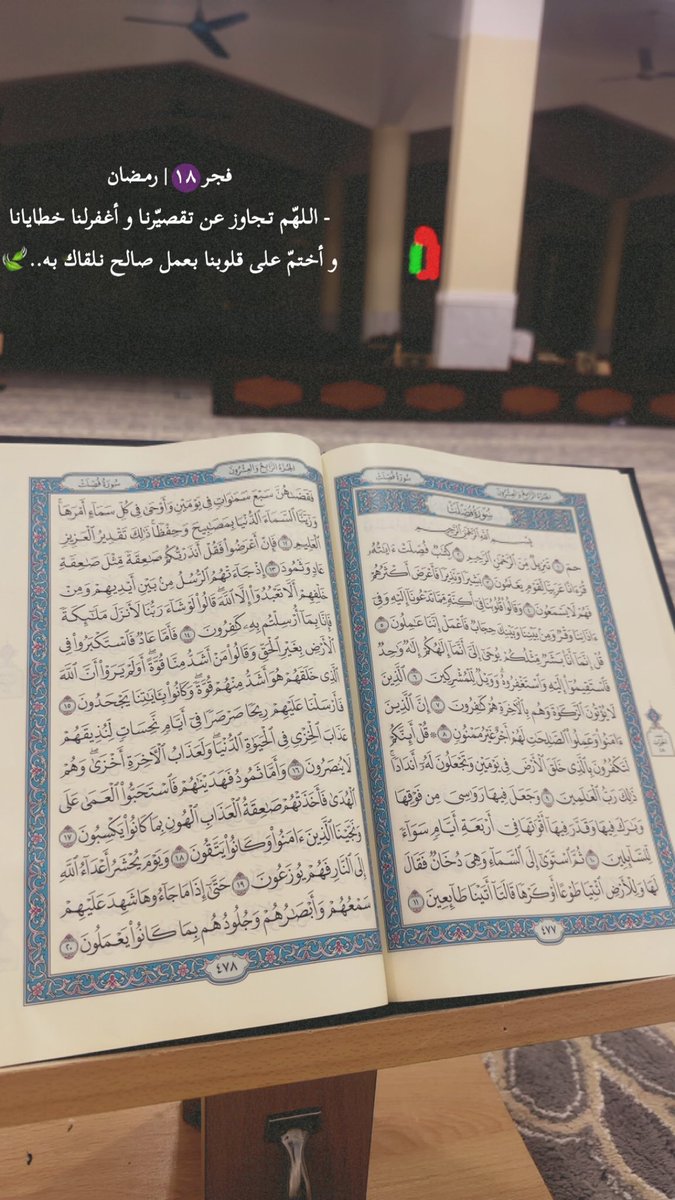 فجر ١٨ | رمضان
- اللهّم تجاوز عن تقصيّرنا و أغفرلنا خطايانا
و أختمّ على قلوبنا بعمل صالح نلقاك به..
الجزء الرابع والعشرون
سورة فصلت
سورة فصلت
بِسْمِ اللَّهِ الرَّحْمَٰنِ الرَّحِيمِ
حمٓ ١ تَنزِيلٌ مِّنَ ٱلرَّحْمَٰنِ ٱلرَّحِيمِ ٢ كِتَٰبٌ فُصِّلَتْ ءَايَٰتُهُۥ
قُرْءَانًا عَرَبِيًّا لِّقَوْمٍ يَعْلَمُونَ ٣ بَشِيرًا وَنَذِيرًا فَأَعْرَضَ أَكْثَرُهُمْ
فَهُمْ لَا يَسْمَعُونَ ٤ وَقَالُوا۟ قُلُوبُنَا فِىٓ أَكِنَّةٍ مِّمَّا تَدْعُونَآ إِلَيْهِ وَفِىٓ
ءَاذَانِنَا وَقْرٌ وَمِنۢ بَيْنِنَا وَبَيْنِكَ حِجَابٌ فَٱعْمَلْ إِنَّنَا عَٰمِلُونَ ٥
قُلْ إِنَّمَآ أَنَا۠ بَشَرٌ مِّثْلُكُمْ يُوحَىٰٓ إِلَىَّ أَنَّمَآ إِلَٰهُكُمْ إِلَٰهٌ وَٰحِدٌ
فَٱسْتَقِيمُوٓا۟ إِلَيْهِ وَٱسْتَغْفِرُوهُ وَوَيْلٌ لِّلْمُشْرِكِينَ ٦ ٱلَّذِينَ
لَا يُؤْتُونَ ٱلزَّكَوٰةَ وَهُم بِٱلْءَاخِرَةِ هُمْ كَٰفِرُونَ ٧ إِنَّ ٱلَّذِينَ
ءَامَنُوا۟ وَعَمِلُوا۟ ٱلصَّٰلِحَٰتِ لَهُمْ أَجْرٌ غَيْرُ مَمْنُونٍ ٨ ۞ قُلْ أَئِنَّكُمْ
لَتَكْفُرُونَ بِٱلَّذِى خَلَقَ ٱلْأَرْضَ فِى يَوْمَيْنِ وَتَجْعَلُونَ لَهُۥٓ أَندَادًا
ذَٰلِكَ رَبُّ ٱلْعَٰلَمِينَ ٩ وَجَعَلَ فِيهَا رَوَٰسِىَ مِن فَوْقِهَا
وَبَٰرَكَ فِيهَا وَقَدَّرَ فِيهَآ أَقْوَٰتَهَا فِىٓ أَرْبَعَةِ أَيَّامٍ سَوَآءً
لِّلسَّآئِلِينَ ١٠ ثُمَّ ٱسْتَوَىٰٓ إِلَى ٱلسَّمَآءِ وَهِىَ دُخَانٌ فَقَالَ
لَهَا وَلِلْأَرْضِ ٱئْتِيَا طَوْعًا أَوْ كَرْهًا قَالَتَآ أَتَيْنَا طَآئِعِينَ ١١
٤٧٧
الجزء الرابع والعشرون
سورة فصلت
فَقَضَىٰهُنَّ سَبْعَ سَمَٰوَاتٍ فِى يَوْمَيْنِ وَأَوْحَىٰ فِى كُلِّ سَمَآءٍ أَمْرَهَا
وَزَيَّنَّا ٱلسَّمَآءَ ٱلدُّنْيَا بِمَصَٰبِيحَ وَحِفْظًا ذَٰلِكَ تَقْدِيرُ ٱلْعَزِيزِ
ٱلْعَلِيمِ ١٢ فَإِنْ أَعْرَضُوا۟ فَقُلْ أَنذَرْتُكُمْ صَٰعِقَةً مِّثْلَ صَٰعِقَةِ
عَادٍ وَثَمُودَ ١٣ إِذْ جَآءَتْهُمُ ٱلرُّسُلُ مِنۢ بَيْنِ أَيْدِيهِمْ وَمِنْ
خَلْفِهِمْ أَلَّا تَعْبُدُوٓا۟ إِلَّا ٱللَّهَ قَالُوا۟ لَوْ شَآءَ رَبُّنَا لَأَنزَلَ مَلَٰٓئِكَةً
فَإِنَّا بِمَآ أُرْسِلْتُم بِهِۦ كَٰفِرُونَ ١٤ فَأَمَّا عَادٌ فَٱسْتَكْبَرُوا۟ فِى
ٱلْأَرْضِ بِغَيْرِ ٱلْحَقِّ وَقَالُوا۟ مَنْ أَشَدُّ مِنَّا قُوَّةً أَوَلَمْ يَرَوْا۟ أَنَّ ٱللَّهَ
ٱلَّذِى خَلَقَهُمْ هُوَ أَشَدُّ مِنْهُمْ قُوَّةً وَكَانُوا۟ بِـَٔايَٰتِنَا يَجْحَدُونَ ١٥
فَأَرْسَلْنَا عَلَيْهِمْ رِيحًا صَرْصَرًا فِىٓ أَيَّامٍ نَّحِسَاتٍ لِّنُذِيقَهُمْ
عَذَابَ ٱلْخِزْىِ فِى ٱلْحَيَوٰةِ ٱلدُّنْيَا وَلَعَذَابُ ٱلْءَاخِرَةِ أَخْزَىٰ وَهُمْ
لَا يُنصَرُونَ ١٦ وَأَمَّا ثَمُودُ فَهَدَيْنَٰهُمْ فَٱسْتَحَبُّوا۟ ٱلْعَمَىٰ عَلَى
ٱلْهُدَىٰ فَأَخَذَتْهُمْ صَٰعِقَةُ ٱلْعَذَابِ ٱلْهُونِ بِمَا كَانُوا۟ يَكْسِبُونَ ١٧
وَنَجَّيْنَا ٱلَّذِينَ ءَامَنُوا۟ وَكَانُوا۟ يَتَّقُونَ ١٨ وَيَوْمَ يُحْشَرُ أَعْدَآءُ ٱللَّهِ
إِلَى ٱلنَّارِ فَهُمْ يُوزَعُونَ ١٩ حَتَّىٰٓ إِذَا مَا جَآءُوهَا شَهِدَ عَلَيْهِمْ
سَمْعُهُمْ وَأَبْصَٰرُهُمْ وَجُلُودُهُم بِمَا كَانُوا۟ يَعْمَلُونَ ٢٠
٤٧٨